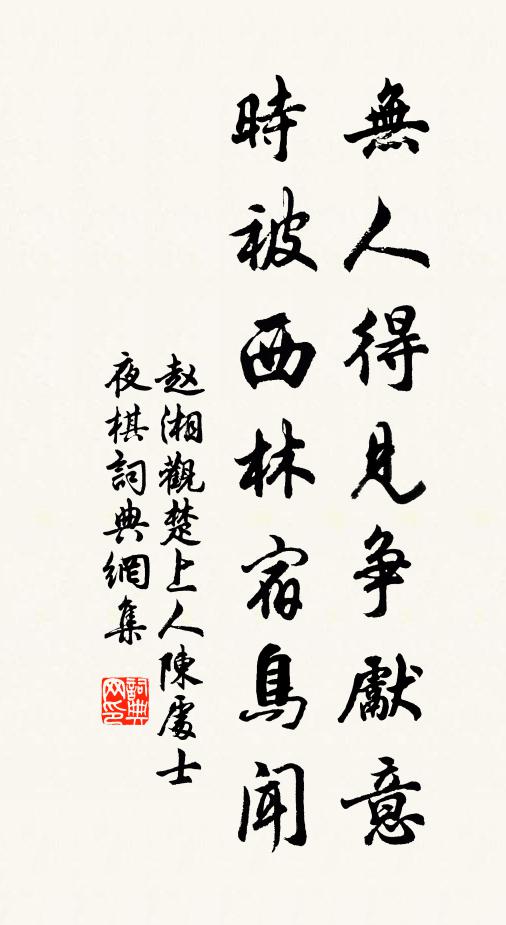 無人得見争獻意
時被西林宿鳥聞
赵湘觀楚上人陳處士
夜棋詞典網集
詞典
网印